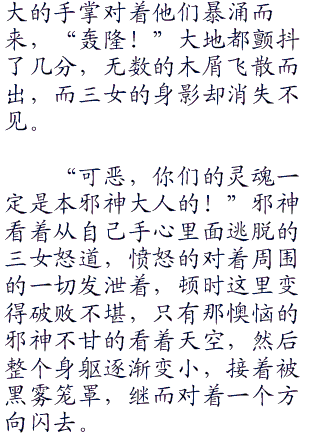 大的手掌对着他们暴涌而
来，“轰隆！”大地都颤抖
了几分，无数的木屑飞散而
出，而三女的身影却消失不
见。
“可恶，你们的灵魂一
定是本邪神大人的！”邪神
看着从自己手心里面逃脱的
三女怒道，愤怒的对着周围
的一切发泄着，顿时这里变
得破败不堪，只有那懊恼的
邪神不甘的看着天空，然后
整个身躯逐渐变小，接着被
黑雾笼罩，继而对着一个方
向闪去。